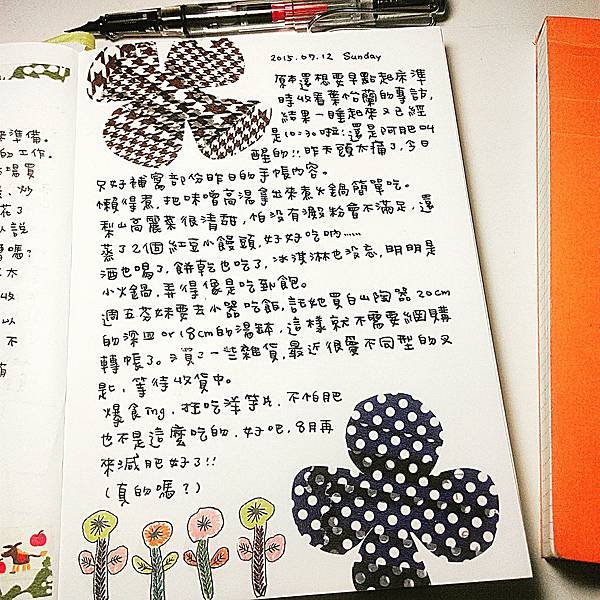 來準備。
的工作。
喝買
、炒
花了
以說
嗎?
太
收
以
不
2015.07.12 Sunday
原本還想要早點起床準
時收看葉怡蘭的專訪,
結果一睡起來又已經
是10:30啦!還是阿肥叫
醒的!!昨天頭太痛了,今日
只好補寫部份昨日的手帳內容。
懶得煮,把味噌高湯拿出來煮火鍋簡單吃。
梨山高麗菜很清甜,怕沒有澱粉會不滿足,還
蒸了2個紅豆小饅頭,好好吃喲……
酒也喝了,餅乾也吃了,冰淇淋也沒忘,明明是
小火鍋,弄得像是吃到飽。
週五芬妹要去小器吃飯,託她買白山陶器20cm
的深皿or18cm的湯缽,這樣就不需要網購
轉帳了。又買了一些雜貨,最近很愛不同型的叉
匙,等待收貨中。
爆食ing,狂吃洋芋片,不怕肥
也不是這麼吃的,好吧,8月再
來減肥好了!!
(真的嗎?)